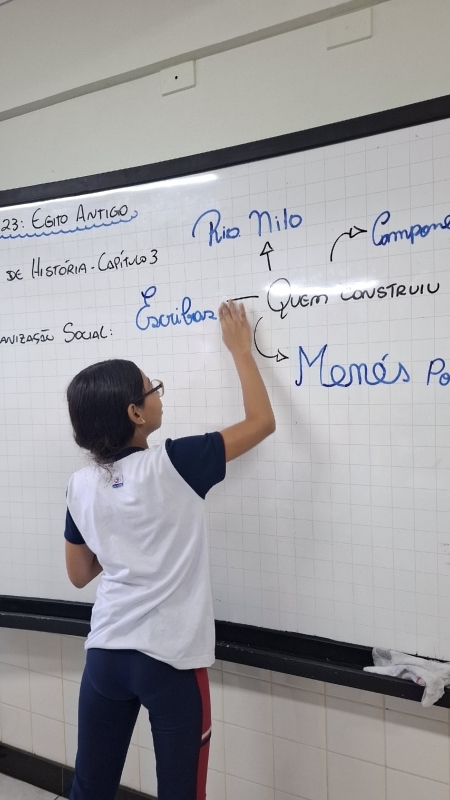 23: EGITO ANTIGO
DE HISTÓRIA - CAPÍTULO 3
SOCIAL:
Rio Nilo
Escribas
QUEM CONSTRUIU
Menés